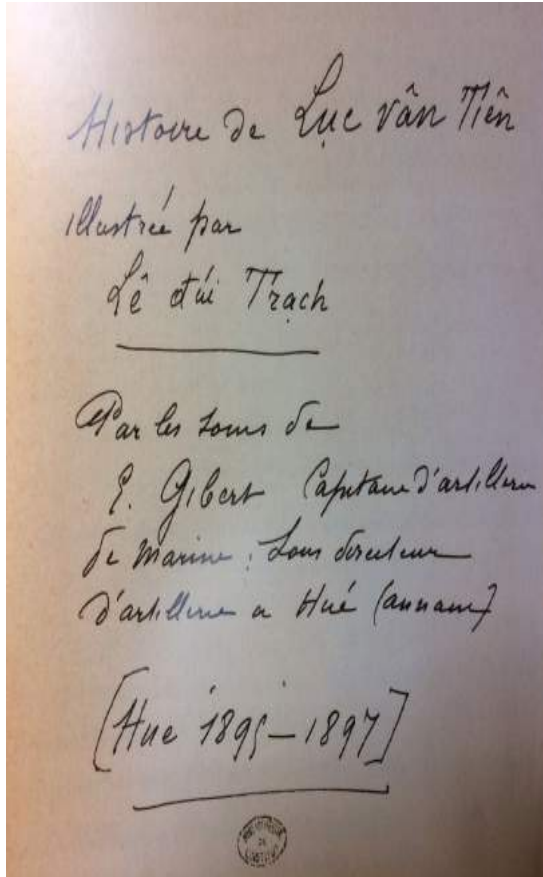 Histoire de Lục Vân Tiên
illustrée par
Lê đức Trạch
Par les soins de
E. Gibert Capitaine d'artillerie
de Marine, Sous directeur
d'artillerie a Hué (annam)
[Hue 1895-1897]
BIBLIOTHÈQUE
DE
L'INSTITUT